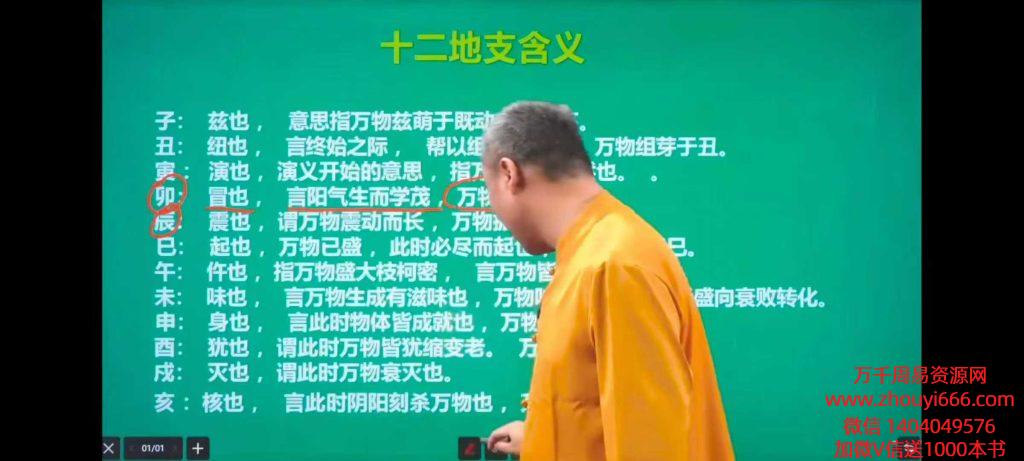 十二地支含义
子： 兹也， 意思指万物兹萌于既动
丑： 纽也， 言终始之际， 帮以纽 万物组芽于丑。
寅： 演也，演义开始的意思，指万 也。 。
卯： 冒也， 言阳气生而孳茂，万物
辰： 震也，谓万物震动而长，万物
巳： 起也，万物已盛，此时必尽而起也 巳。
午： 仵也，指万物盛大枝柯密， 言万物皆
未： 味也， 言万物生成有滋味也，万物 盛向衰败转化。
申： 身也， 言此时物体皆成就也，万物
酉： 犹也，谓此时万物皆犹缩变老。 万
戌： 灭也，谓此时万物衰灭也。
亥： 核也， 言此时阴阳刻杀万物也，
01/01
万千周易资源网
www.zhouyi666.com
微信 1404049576
加微V信送1000本书